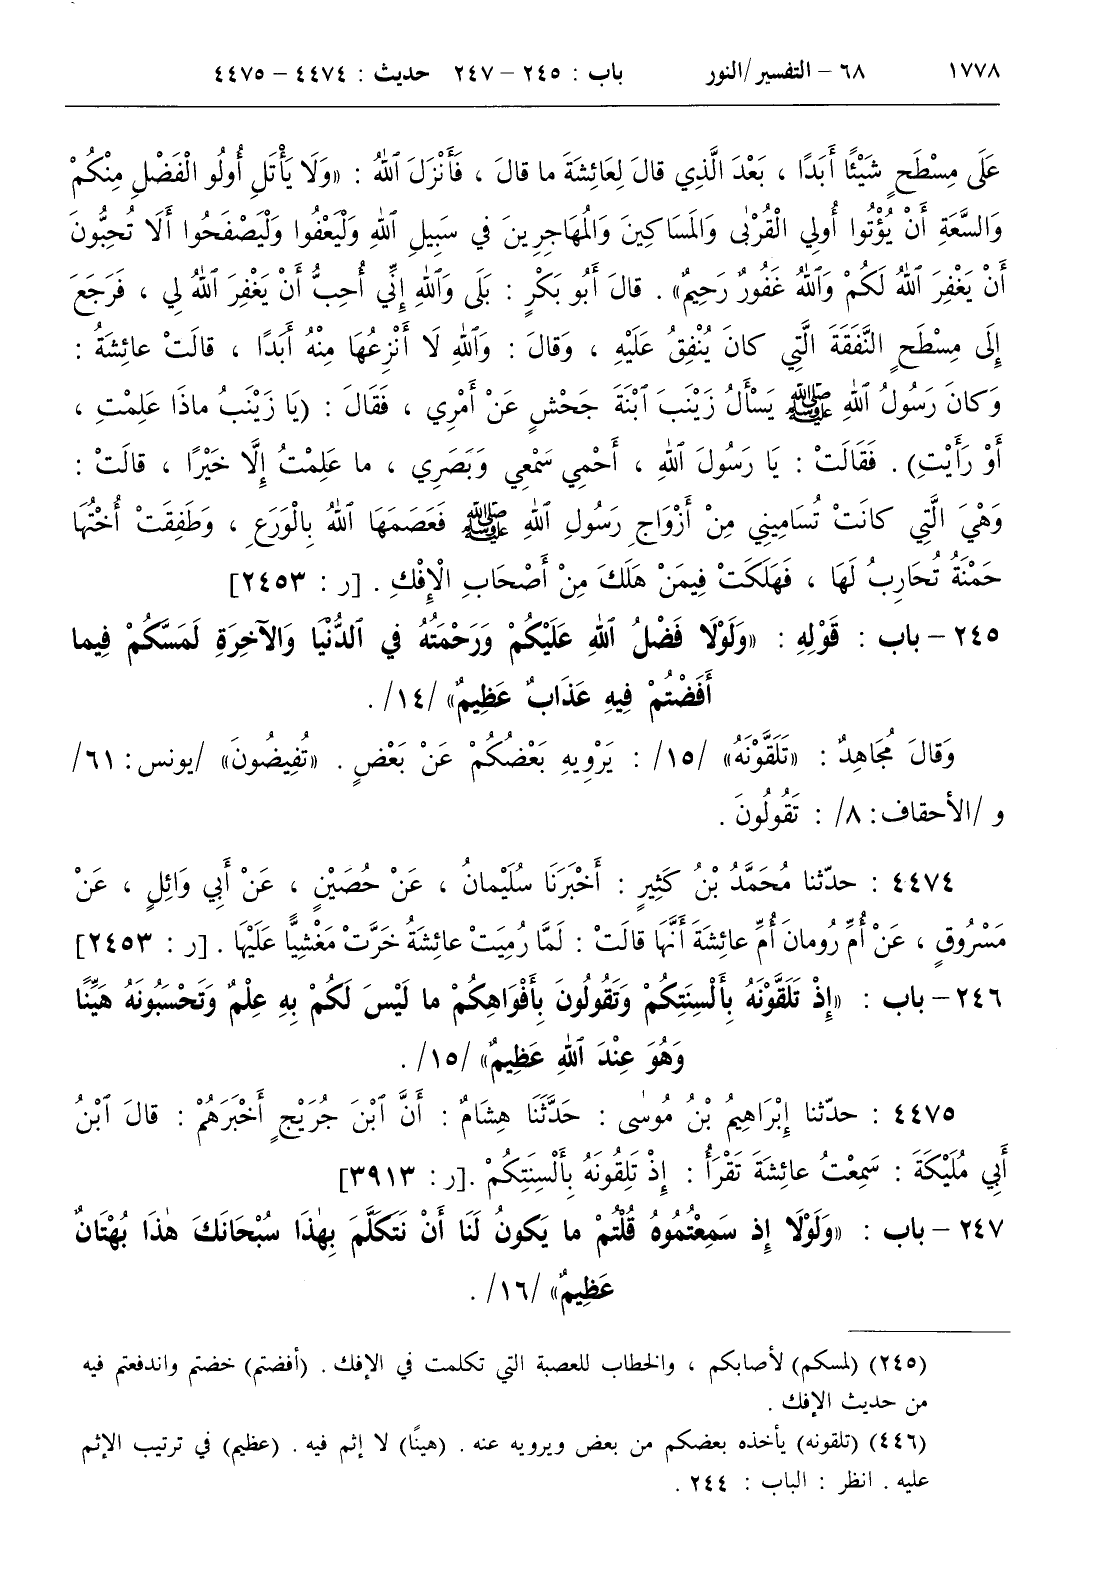 ١٧٧٨ ٦٨ - التفسير/النور باب : ٢٤٥ - ٢٤٧ حديث : ٤٤٧٤ - ٤٤٧٥
عَلَى مِسْطَحٍ شَيْئًا أَبَدًا ، بَعْدَ الَّذِي قالَ لِعَائِشَةَ ما قالَ ، فَأَنْزَلَ ٱللهُ : «وَلَا يَأْتَلِ أُولُو الْفَضْلِ مِنْكُمْ
وَالسَّعَةِ أَنْ يُؤْتُوا أُولِي الْقُرْبٰى وَالمَسَاكِينَ وَالْمُهَاجِرِينَ في سَبِيلِ ٱللهِ وَلْيَعْفُوا وَلْيَصْفَحُوا أَلَا تُحِبُّونَ
أَنْ يَغْفِرَ ٱللهُ لَكُمْ وَٱللهُ غَفُورٌ رَحِيمٌ» . قالَ أَبُو بَكْرٍ : بَلَى وَٱللهِ إِنِّي أُحِبُّ أَنْ يَغْفِرَ ٱللهُ لِي ، فَرَجَعَ
إِلَى مِسْطَحٍ النَّفَقَةَ الَّتِي كانَ يُنْفِقُ عَلَيْهِ ، وَقالَ : وَٱللهِ لَا أَنْزِعُهَا مِنْهُ أَبَدًا ، قالَتْ عائِشَةُ :
وَكانَ رَسُولُ ٱللهِ ﷺ يَسْأَلُ زَيْنَبَ ٱبْنَةَ جَحْشٍ عَنْ أَمْرِي ، فَقَالَ : (يَا زَيْنَبُ ماذَا عَلِمْتِ ،
أَوْ رَأَيْتِ) . فَقَالَتْ : يَا رَسُولَ ٱللهِ ، أَحْمِي سَمْعِي وَبَصَرِي ، ما عَلِمْتُ إِلَّا خَيْرًا ، قالَتْ :
وَهْيَ الَّتِي كانَتْ تُسَامِينِي مِنْ أَزْوَاجِ رَسُولِ ٱللهِ ﷺ فَعَصَمَهَا ٱللهُ بِالْوَرَعِ ، وَطَفِقَتْ أُخْتُهَا
حَمْنَةُ تُحَارِبُ لَهَا ، فَهَلَكَتْ فِيمَنْ هَلَكَ مِنْ أَصْحَابِ الْإِفْكِ . [ر : ٢٤٥٣]
٢٤٥ - باب : قَوْلِهِ : «وَلَوْلَا فَضْلُ ٱللهِ عَلَيْكُمْ وَرَحْمَتُهُ في ٱلدُّنْيَا وَالآخِرَةِ لَمَسَّكُمْ فِيما
أَفَضْتُمْ فِيهِ عَذَابٌ عَظِيمٌ» /١٤/ .
وَقالَ مُجَاهِدٌ : «تَلَقَّوْنَهُ» /١٥/ : يَرْوِيهِ بَعْضُكُمْ عَنْ بَعْضٍ . «تُفِيضُونَ» /يونس: ٦١/
و /الأحقاف: ٨/ : تَقُولُونَ .
٤٤٧٤ : حدّثنا مُحَمَّدُ بْنُ كَثِيرٍ : أَخْبَرَنَا سُلَيْمانُ ، عَنْ حُصَيْنٍ ، عَنْ أَبِي وَائِلٍ ، عَنْ
مَسْرُوقٍ ، عَنْ أُمِّ رُومانَ أُمِّ عائِشَةَ أَنَّهَا قالَتْ : لَمَّا رُمِيَتْ عائِشَةُ خَرَّتْ مَغْشِيًّا عَلَيْهَا . [ر : ٢٤٥٣]
٢٤٦ - باب : «إِذْ تَلَقَّوْنَهُ بِأَلْسِنَتِكُمْ وَتَقُولُونَ بِأَفْوَاهِكُمْ ما لَيْسَ لَكُمْ بِهِ عِلْمٌ وَتَحْسَبُونَهُ هَيِّنًا
وَهُوَ عِنْدَ ٱللهِ عَظِيمٌ» /١٥/ .
٤٤٧٥ : حدّثنا إِبْرَاهِيمُ بْنُ مُوسٰى : حَدَّثَنَا هِشَامٌ : أَنَّ ٱبْنَ جُرَيْجٍ أَخْبَرَهُمْ : قالَ ٱبْنُ
أَبِي مُلَيْكَةَ : سَمِعْتُ عائِشَةَ تَقْرَأُ : إِذْ تَلِقُونَهُ بِأَلْسِنَتِكُمْ .[ر : ٣٩١٣]
٢٤٧ - باب : «وَلَوْلَا إِذ سَمِعْتُمُوهُ قُلْتُمْ ما يَكُونُ لَنَا أَنْ نَتَكَلَّمَ بِهٰذَا سُبْحَانَكَ هٰذَا بُهْتَانٌ
عَظِيمٌ» /١٦/ .
(٢٤٥) (لمسكم) لأصابكم ، والخطاب للعصبة التي تكلمت في الإفك . (أفضتم) خضتم واندفعتم فيه
من حديث الإفك .
(٤٤٦) (تلقونه) يأخذه بعضكم من بعض ويرويه عنه . (هينًا) لا إثم فيه . (عظيم) في ترتيب الإثم
عليه . انظر : الباب : ٢٤٤ .